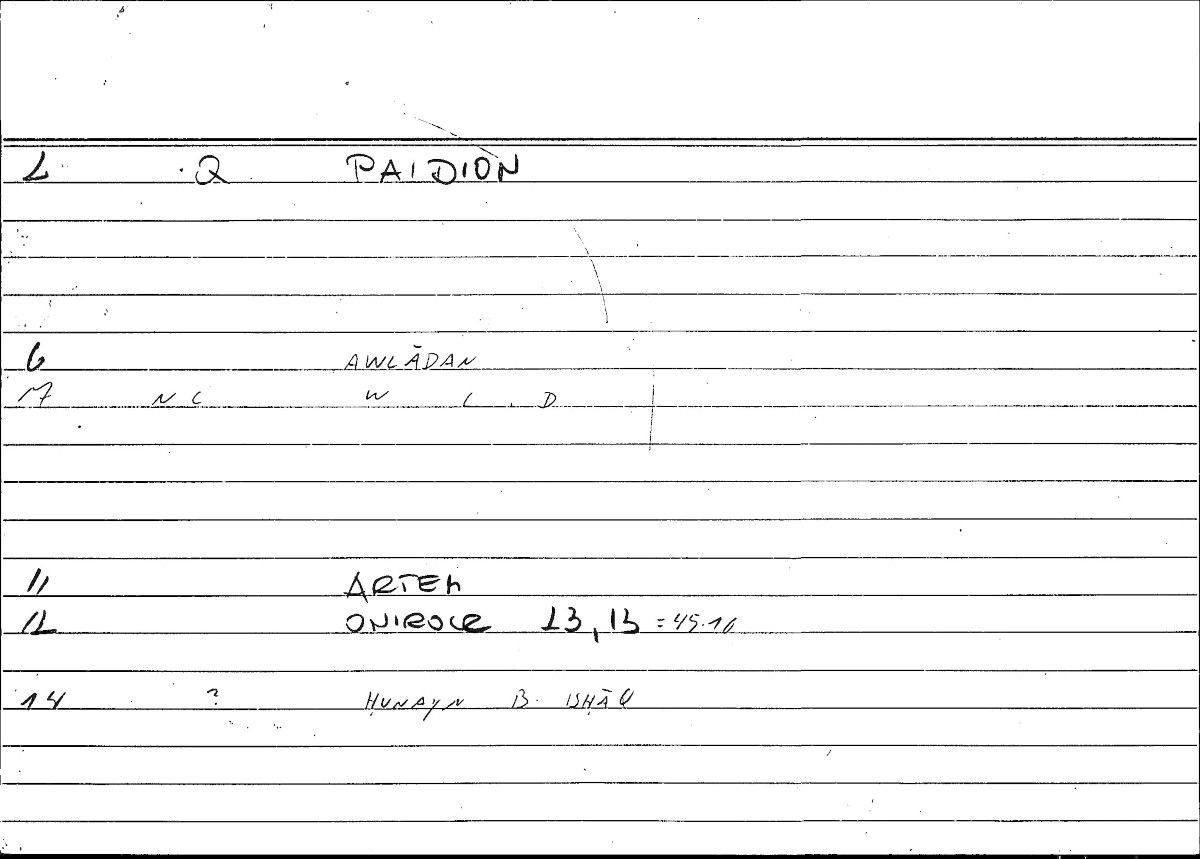 1 Q PAIDION
6 AWLĀDAN
7 NC W L D
11 ARTEM
12 ONIROCR 13,13 = 45.10
14 ? ḤUNAYN B. ISḤĀQ